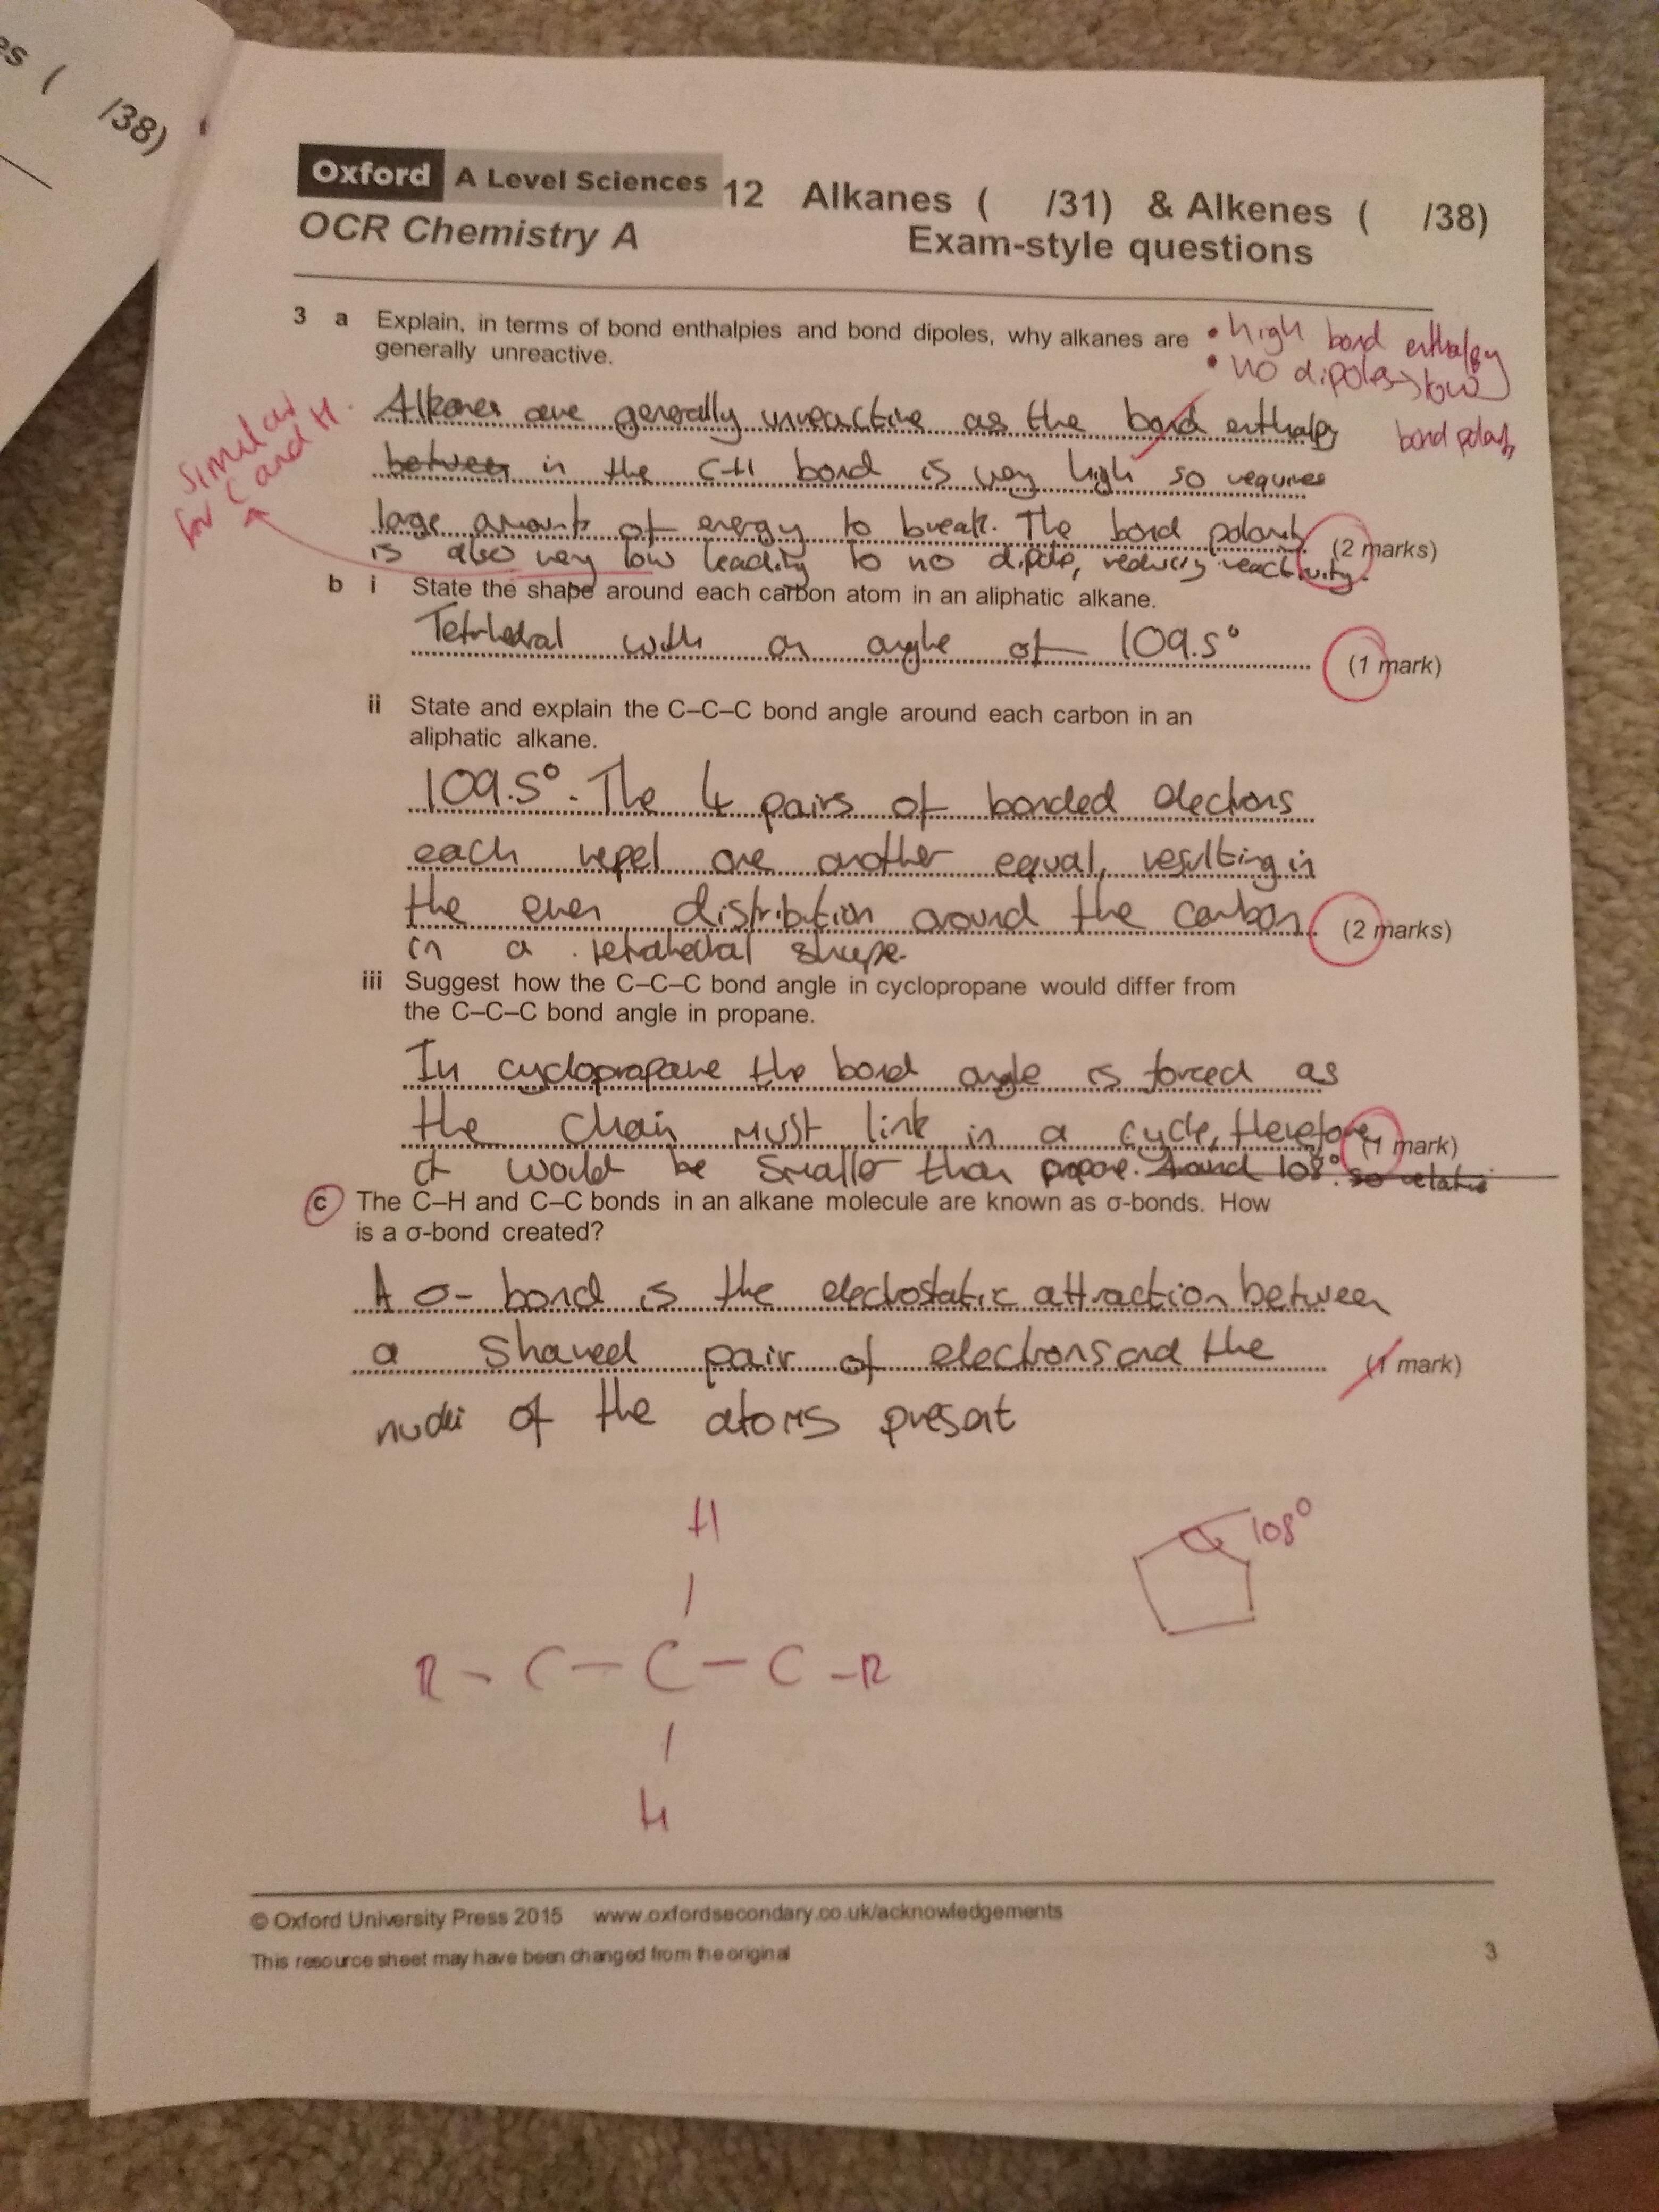 es ( /38)
Oxford A Level Sciences 12 Alkanes ( /31) & Alkenes ( /38)
OCR Chemistry A Exam-style questions
3 a Explain, in terms of bond enthalpies and bond dipoles, why alkanes are
generally unreactive.
• high bond enthalpy
• no dipoles → low
bond polarity
Alkanes are generally unreactive as the bond enthalpy
between in the C-H bond is very high so requires
large amounts of energy to break. The bond polarity (2 marks)
is also very low leading to no dipole, reducing reactivity.
similar
for C and H.
b i State the shape around each carbon atom in an aliphatic alkane.
Tetrhedral with an angle of 109.5°
(1 mark)
ii State and explain the C–C–C bond angle around each carbon in an
aliphatic alkane.
109.5°. The 4 pairs of bonded electrons
each repel one another equal, resulting in
the even distribution around the carbon (2 marks)
in a tetrahedral shape.
iii Suggest how the C–C–C bond angle in cyclopropane would differ from
the C–C–C bond angle in propane.
In cyclopropane the bond angle is forced as
the chain must link in a cycle, therefore (1 mark)
it would be smaller than propane. Around 108°. so relative
c The C–H and C–C bonds in an alkane molecule are known as σ-bonds. How
is a σ-bond created?
A σ- bond is the electrostatic attraction between
a shared pair of electrons and the (1 mark)
nuclei of the atoms present
H
108°
R - C - C - C - R
H
© Oxford University Press 2015 www.oxfordsecondary.co.uk/acknowledgements
This resource sheet may have been changed from the original
3